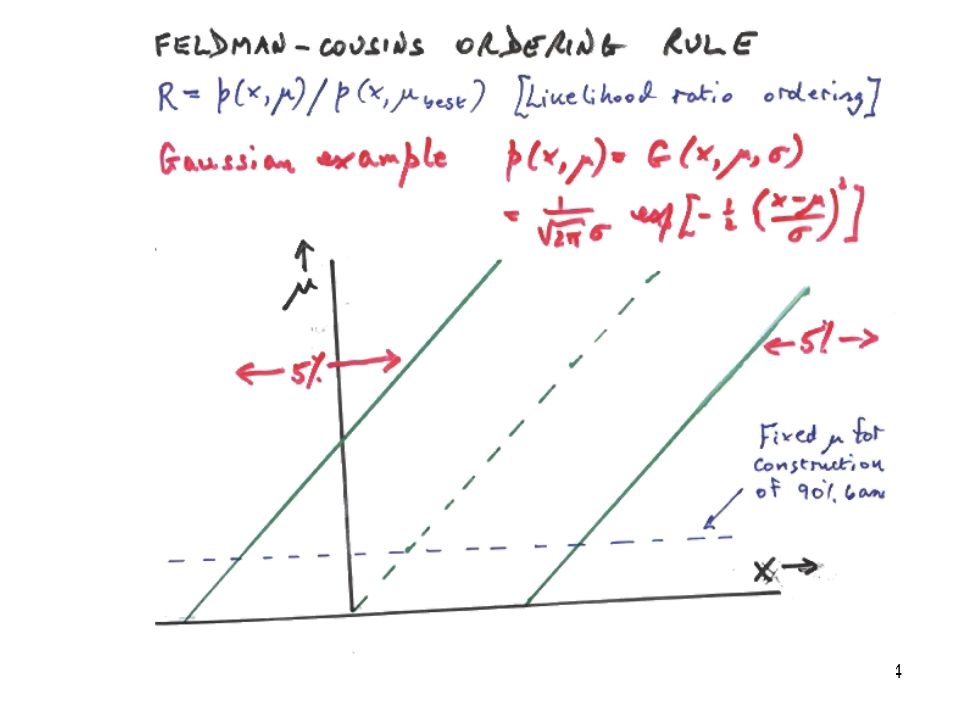 FELDMAN - COUSINS ORDERING RULE
R = p(x, μ) / p(x, μ best) [Likelihood ratio ordering]
Gaussian example p(x, μ) = G(x, μ, σ)
= 1/√2π σ exp[-½ (x-μ/σ)²]
↑
μ
← 5% →
← 5% →
Fixed μ for
construction
of 90% ban
x →
4